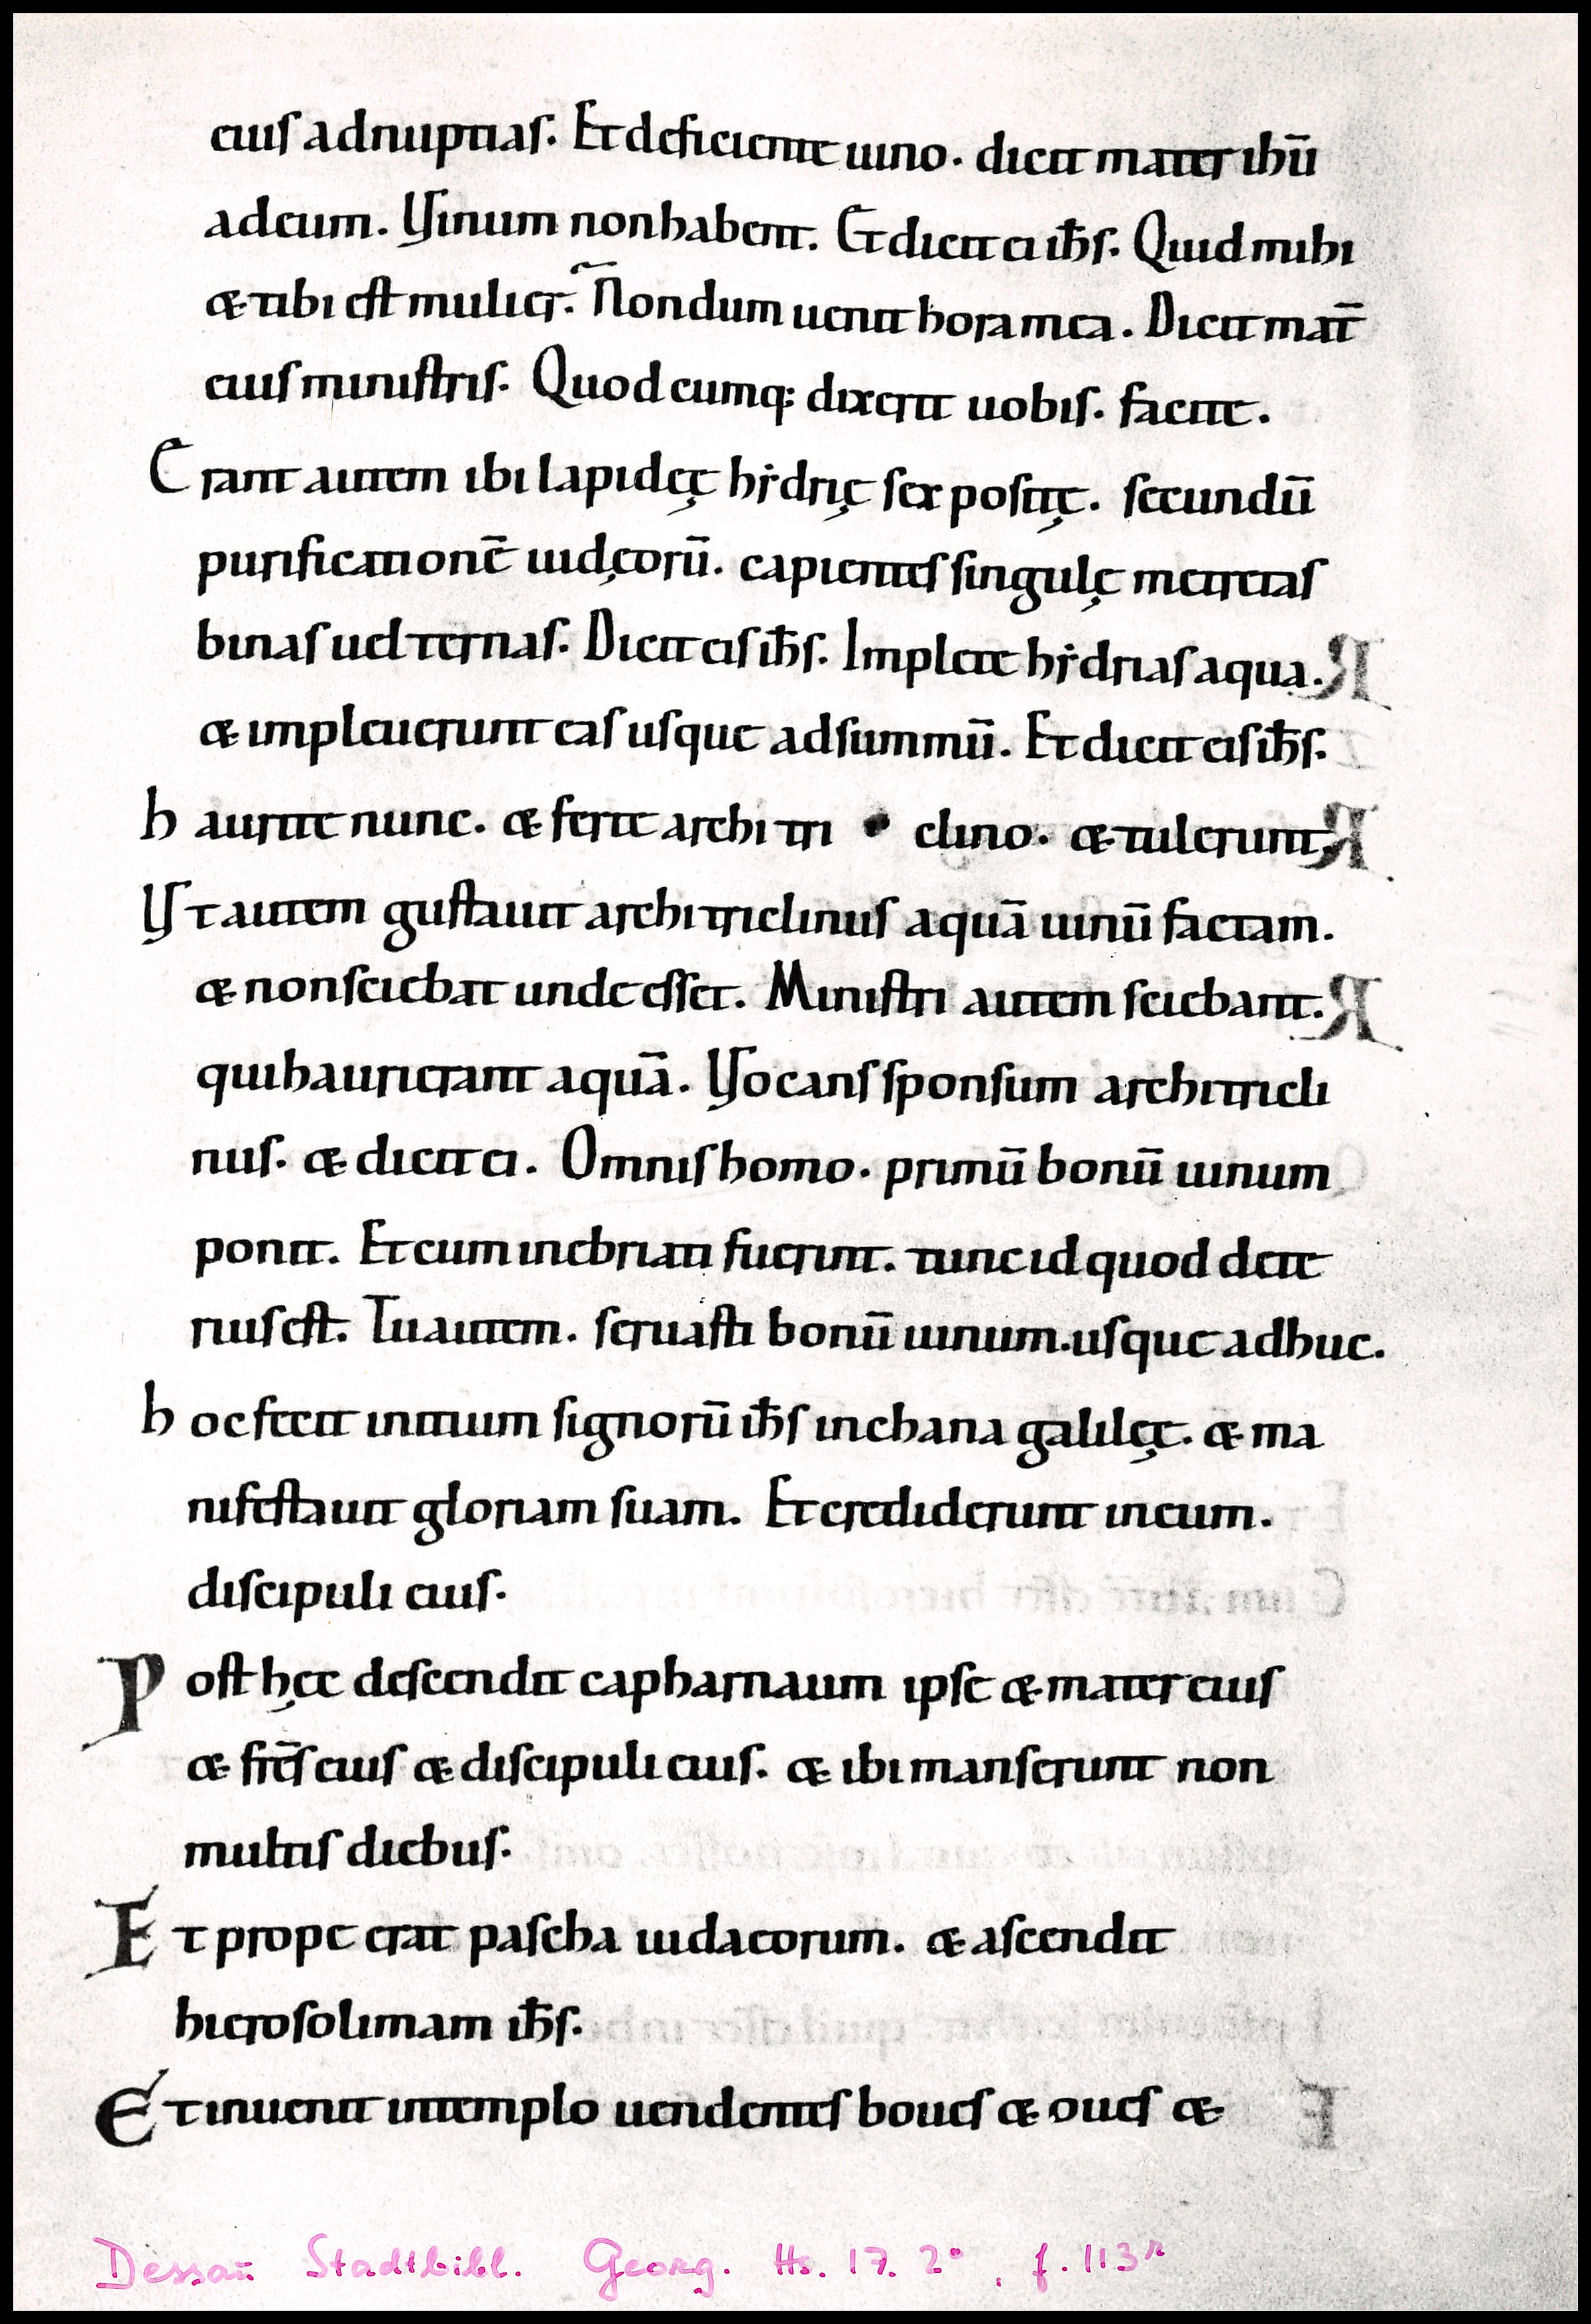 eius ad nuptias. Et deficiente uino. dicit mater ihū
ad eum. Vinum non habent. Et dicit ei ih̄s. Quid mihi
& tibi est mulier. Nondum uenit hora mea. Dicit mat̄
eius ministris. Quodcumq; dixerit uobis. facite.
Erant autem ibi lapideę hẏdrię sex positę. secundū
purificationē iudęorū. capientes singulę metretas
binas uel ternas. Dicit eis ih̄s. Implete hẏdrias aqua.
& impleuerunt eas usque ad summū. Et dicit eis ih̄s.
haurite nunc. & ferte architriclino. & tulerunt.
Vt autem gustauit architriclinus aquā uinū factam.
& non sciebat unde esset. Ministri autem sciebant.
qui haurierant aquā. Vocans sponsum architricli
nus. & dicit ei. Omnis homo. primū bonū uinum
ponit. Et cum inebriati fuerint. tunc id quod dete
rius est. Tu autem. seruasti bonū uinum. usque adhuc.
hoc fecit initium signorū ih̄s in chana galileę. & ma
nifestauit gloriam suam. Et crediderunt in eum.
discipuli eius.
Post hęc descendit capharnaum ipse & mater eius
& frēs eius & discipuli eius. & ibi manserunt non
multis diebus.
Et prope erat pascha iudaeorum. & ascendit
hierosolimam ih̄s.
Et inuenit in templo uendentes boues & oues &
Dessau Stadtbibl. Georg. Hs. 17. 2°, f. 113r